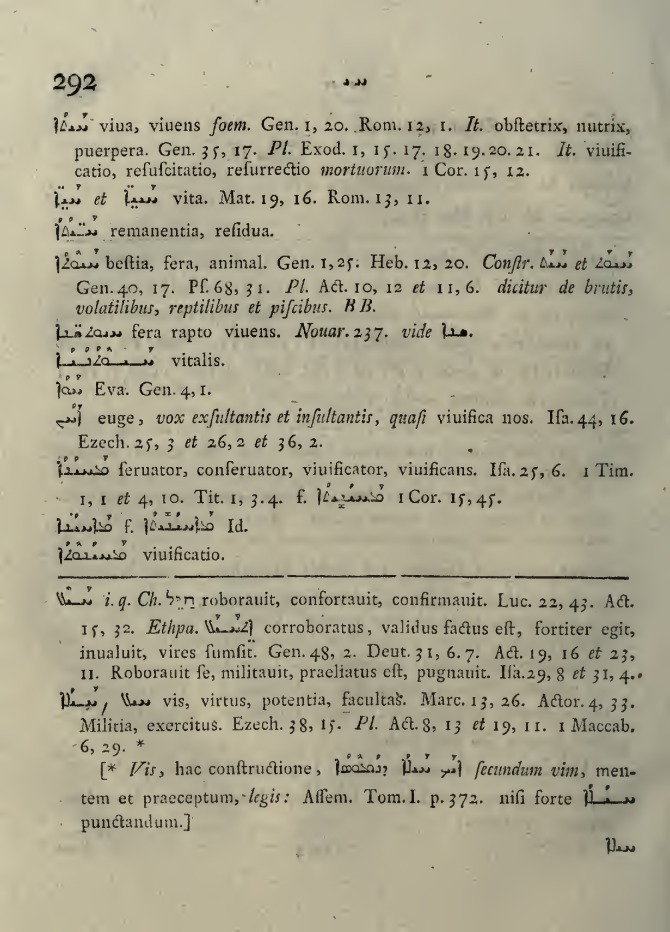 292 ܚܝ
ܚܝܬܐ viua, viuens foem. Gen. 1, 20. Rom. 12, 1. It. obſtetrix, nutrix,
puerpera. Gen. 35, 17. Pl. Exod. 1, 15. 17. 18. 19. 20. 21. It. viuifi-
catio, reſuſcitatio, reſurrectio mortuorum. 1 Cor. 15, 12.
ܚܝ̈ܐ et ܚܝܝ̈ܐ vita. Mat. 19, 16. Rom. 13, 11.
remanentia, reſidua.
ܚܝܘܬܐ beſtia, fera, animal. Gen. 1, 25. Heb. 12, 20. Conſtr. ܚܝܬ et ܚܝܘܬ
Gen. 40, 17. Pſ. 68, 31. Pl. Act. 10, 12 et 11, 6. dicitur de brutis,
volatilibus, reptilibus et piſcibus. BB.
fera rapto viuens. Nouar. 237. vide
ܚܝܘܬܢܝܐ vitalis.
ܚܘܐ Eva. Gen. 4, 1.
ܐܚܝ euge, vox exſultantis et inſultantis, quaſi viuifica nos. Iſa. 44, 16.
Ezech. 25, 3 et 26, 2 et 36, 2.
ܡܚܝܢܐ ſeruator, conſeruator, viuificator, viuificans. Iſa. 25, 6. 1 Tim.
1, 1 et 4, 10. Tit. 1, 3. 4. f. ܡܚܝܢܝܬܐ 1 Cor. 15, 45.
ܡܐܚܝܢܐ f. ܡܐܚܝܢܝܬܐ Id.
ܡܚܝܢܘܬܐ viuificatio.
ܚܝܠ i. q. Ch. חַיֵּל roborauit, confortauit, confirmauit. Luc. 22, 43. Act.
15, 32. Ethpa. ܐܬܚܝܠ corroboratus, validus factus eſt, fortiter egit,
inualuit, vires ſumſit. Gen. 48, 2. Deut. 31, 6. 7. Act. 19, 16 et 23,
11. Roborauit ſe, militauit, praeliatus eſt, pugnauit. Iſa. 29, 8 et 31, 4.
ܚܝܠܐ, ܚܝܠ vis, virtus, potentia, facultas. Marc. 13, 26. Actor. 4, 33.
Militia, exercitus. Ezech. 38, 15. Pl. Act. 8, 13 et 19, 11. 1 Maccab.
6, 29. *
[* Vis, hac conſtructione, ܐܝܟ ܚܝܠܐ ܕܢܡܘܣܐ ſecundum vim, men-
tem et praeceptum, legis: Aſſem. Tom. I. p. 372. niſi forte ܚܝܠܐ
punctandum.]
ܚܝܠܐ